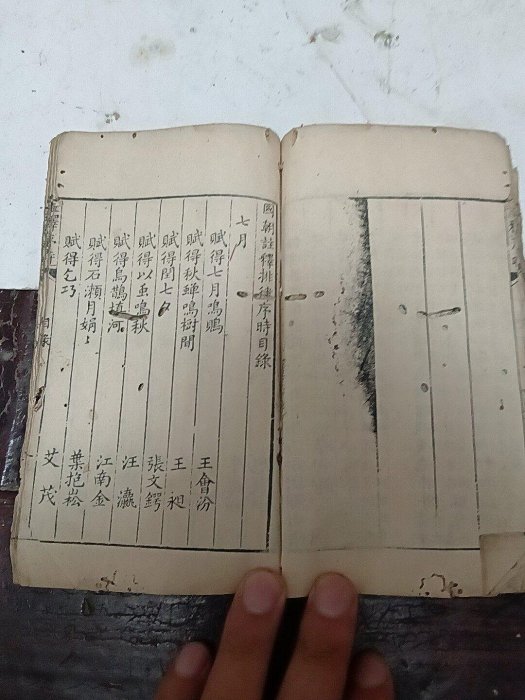 國朝註釋排律序時目錄
七月
賦得七月鳴鵙 王會汾
賦得秋蟬鳴樹間 王昶
賦得閏七夕 張文鍔
賦得以虫鳴秋 汪瀛
賦得烏鵲填河 江南金
賦得石瀨月娟〻 葉抱崧
賦得乞巧 艾茂